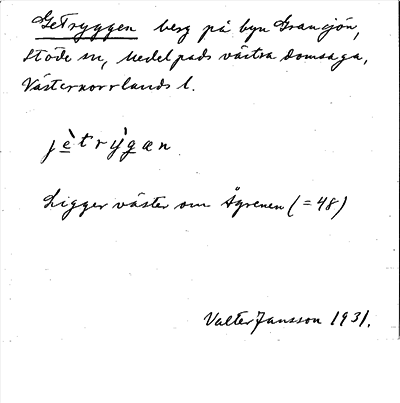 Getryggen berg på byn Gransjön,
Stöde sn, Medelpads västra domsaga,
Västernorrlands l.
jètrỳgan
Ligger väster om Ågrenen (=48)
Valter Jansson 1931.